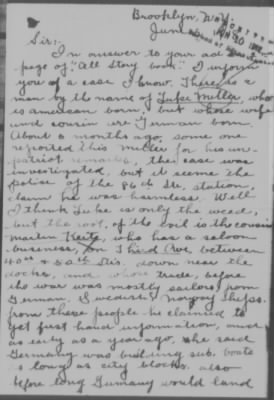 Brooklyn, N.Y.
June
Sir:-
In answer to your ad
page of "All Story book" I inform
you of a case I know. There is a
man by the name of Luke Miller, who
is American born, but whose wife
and cousin are German born.
About 6 months ago, some one
reported this Miller for his un-
patriot remarks, the case was
investigated, but it seems the
police of the 86 th Str. station,
claim he was harmless. Well
I think Luke is only the weed,
but the root, of the evil is the cousin
Martin, who has a saloon
buseness, on Third Ave. between
40th & 50th Sts. down near the
docks, and whose trade, before
the war was mostly sailors from
German, Swedish & Norway ships.
from these people he claimed to
get first hand information, and
as early as a year ago, she said
Germany was building sub. boats
as long as city blocks. also
before long Germany would land